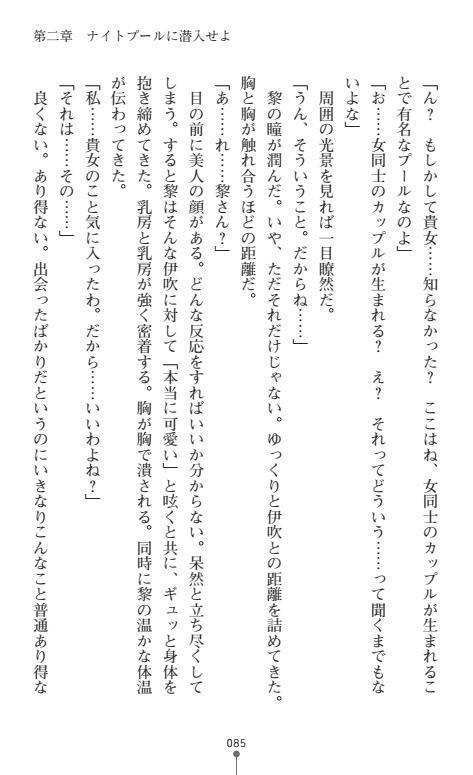 第二章　ナイトプールに潜入せよ
「ん？　もしかして貴女……知らなかった？　ここはね、女同士のカップルが生まれるこ
とで有名なプールなのよ」
「お……女同士のカップルが生まれる？　え？　それってどういう……って聞くまでもな
いよな」
周囲の光景を見れば一目瞭然だ。
「うん、そういうこと。だからね……」
黎の瞳が潤んだ。いや、ただそれだけじゃない。ゆっくりと伊吹との距離を詰めてきた。
胸と胸が触れ合うほどの距離だ。
「あ……れ……黎さん？」
目の前に美人の顔がある。どんな反応をすればいいか分からない。呆然と立ち尽くして
しまう。すると黎はそんな伊吹に対して「本当に可愛い」と呟くと共に、ギュッと身体を
抱き締めてきた。乳房と乳房が強く密着する。胸が胸で潰される。同時に黎の温かな体温
が伝わってきた。
「私……貴女のこと気に入ったわ。だから……いいわよね？」
「それは……その……」
良くない。あり得ない。出会ったばかりだというのにいきなりこんなこと普通あり得な
085